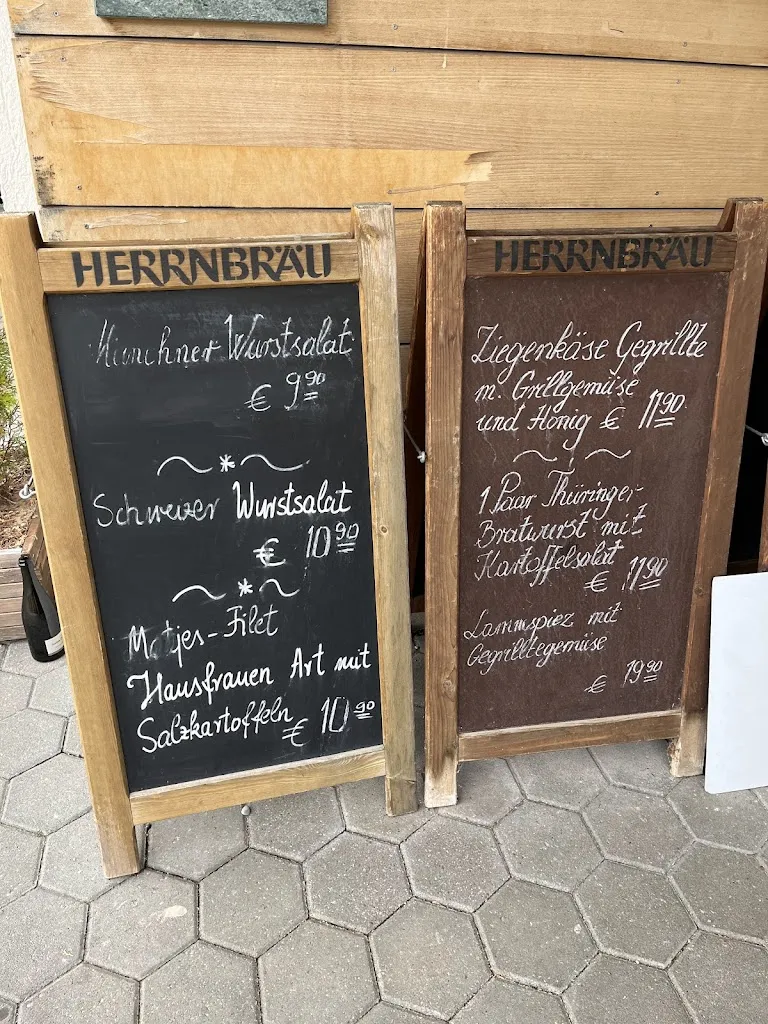 HERRNBRÄU
Münchner Wurstsalat
€ 9 90
Schweizer Wurstsalat
€ 10 90
Matjes-Filet
Hausfrauen Art mit
Salzkartoffeln € 10 90
HERRNBRÄU
Ziegenkäse Gegrillte
m. Grillgemüse
und Honig € 11 90.
1 Paar Thüringer
Bratwurst mit
Kartoffelsalat
€ 11 90
Lammspiez mit
Gegrilltegemüse
€ 19 90